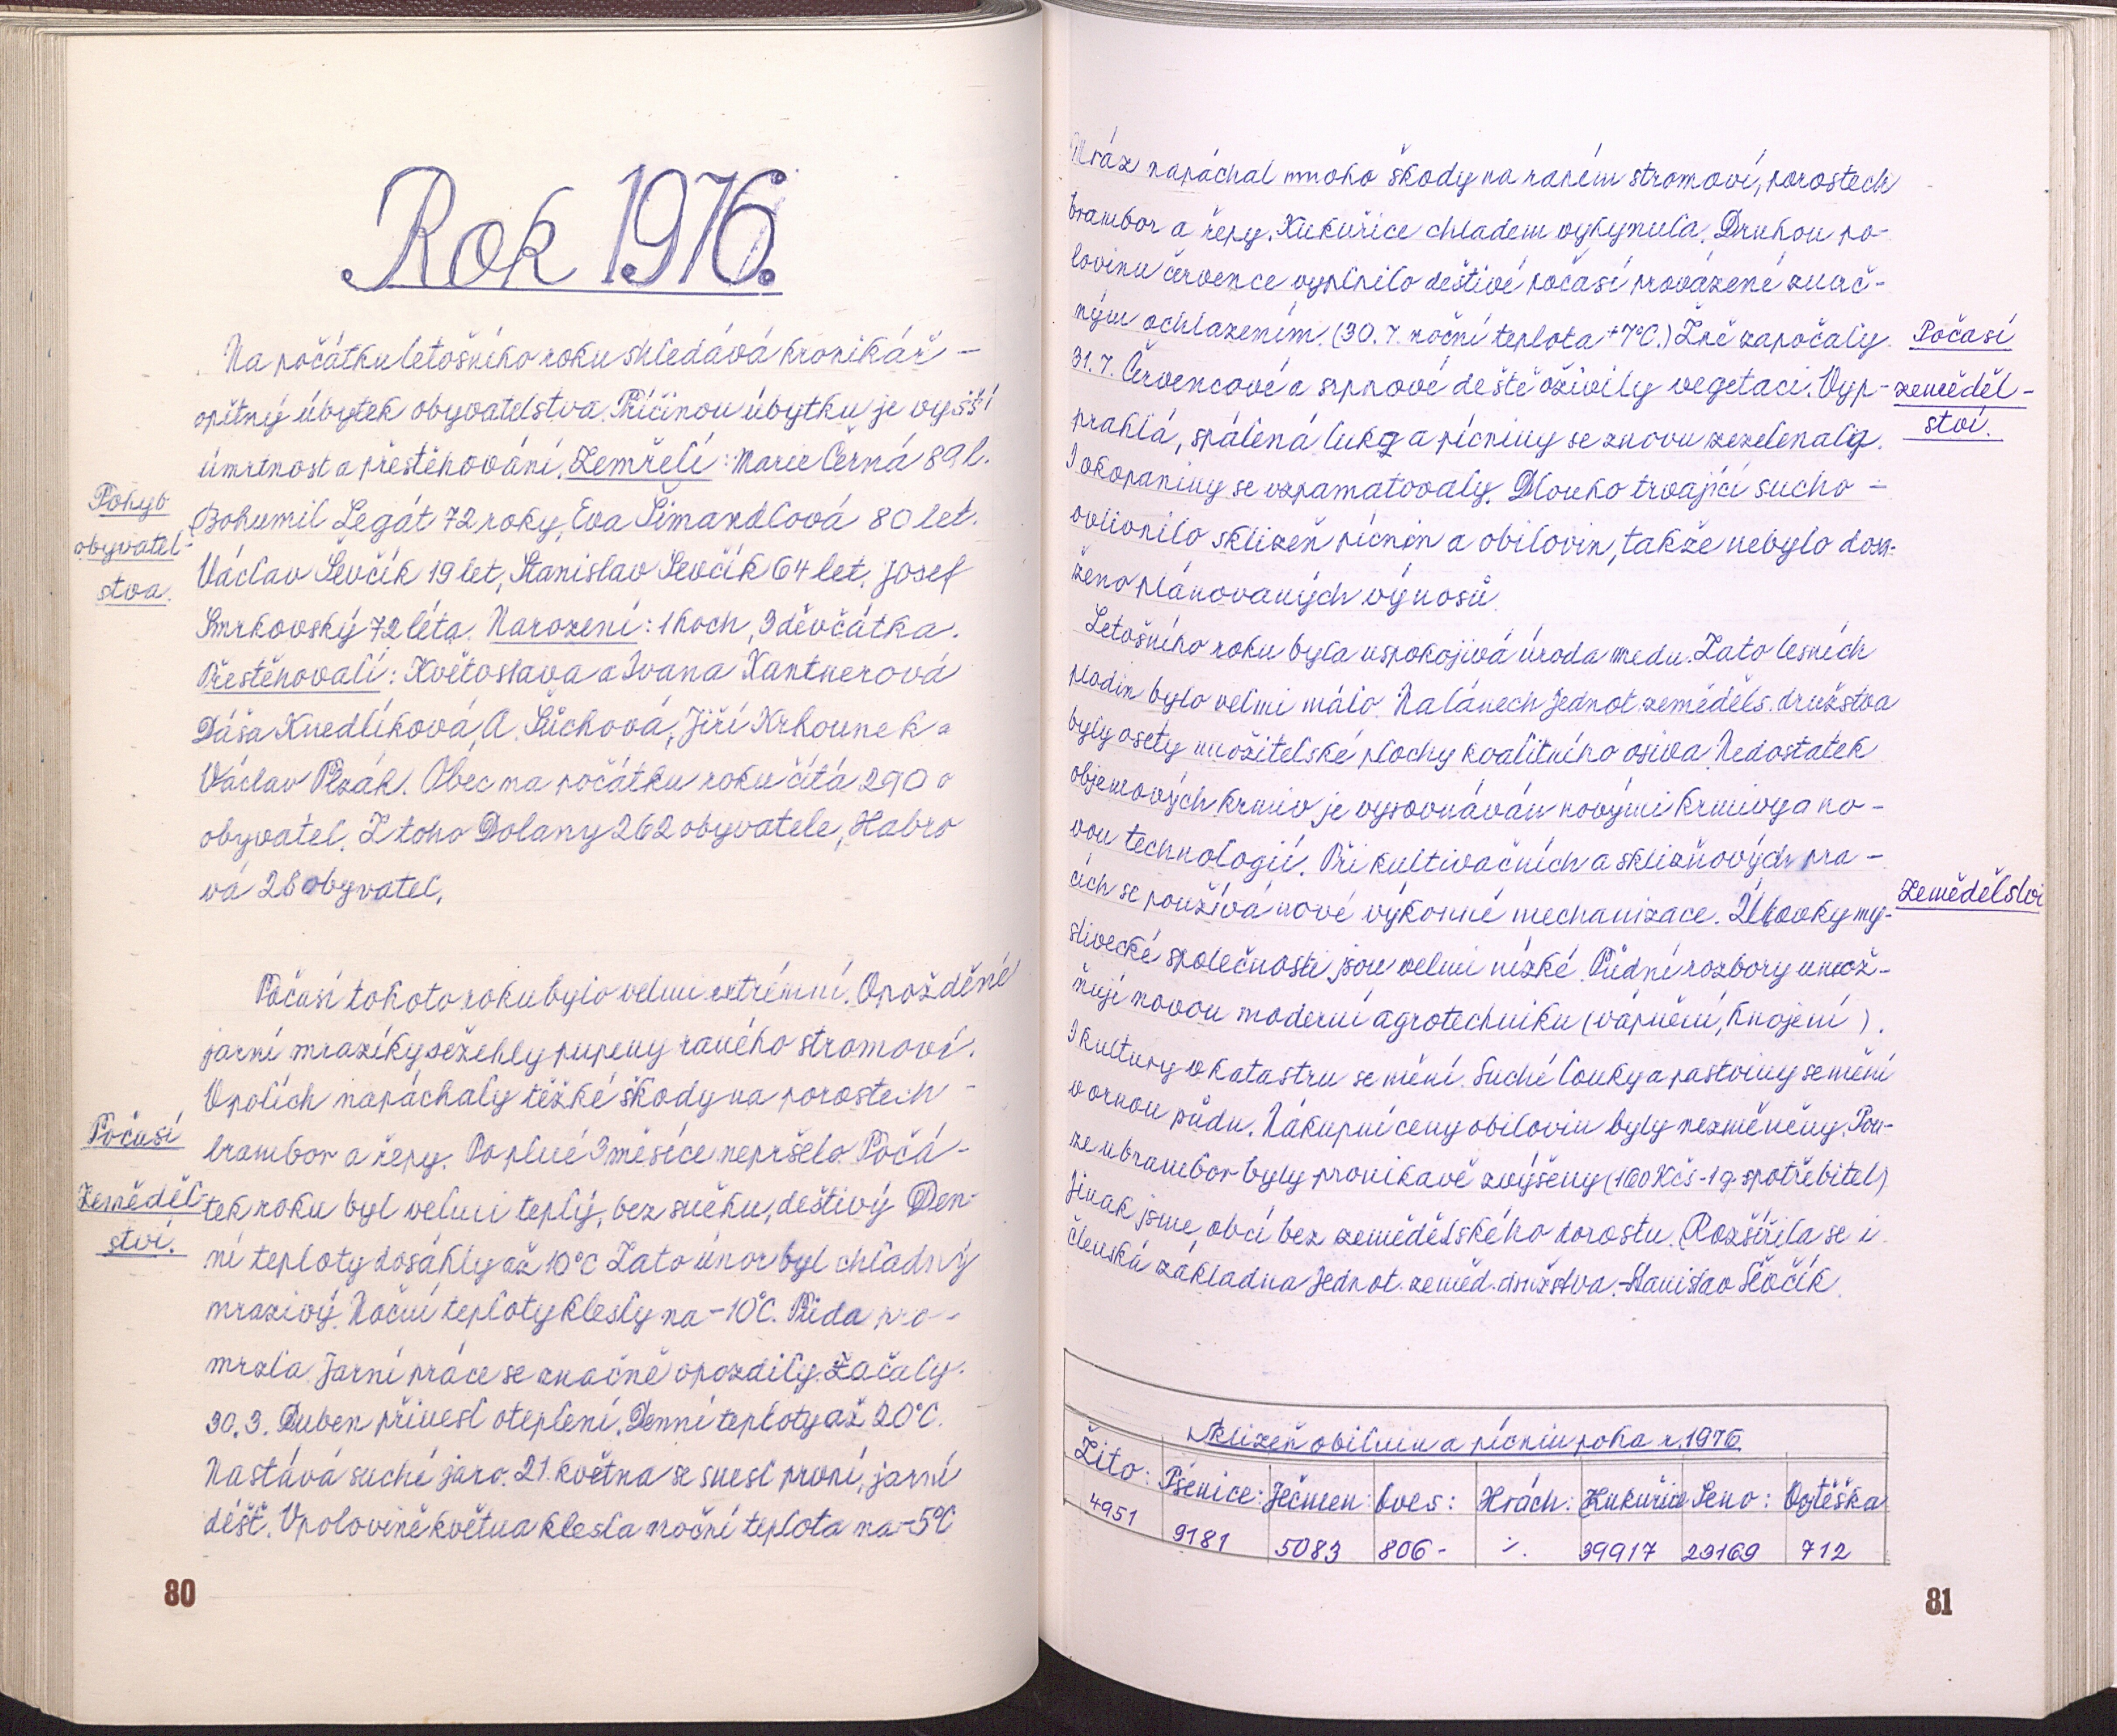 Rok 1976.
Na počátku letošního roku shledává kronikář -
opětný úbytek obyvatelstva. Příčinou úbytku je vyšší
úmrtnost a přestěhování. Zemřeli: Marie Černá 89 l.
Pohyb
obyvatel-
stva.
Bohumil Legát 72 roky, Eva Šimandlová 80 let.
Václav Ševčík 19 let, Stanislav Ševčík 64 let, Josef
Smrkovský 72 léta. Narození: 1 hoch, 3 děvčátka.
Přestěhovalí: Květoslava a Ivana Kantnerová
Dáša Knedlíková, A. Sůchová, Jiří Krhounek a
Václav Plzák. Obec na počátku roku čítá 290
obyvatel. Z toho Dolany 262 obyvatele, Habro
vá 28 obyvatel.
Počasí tohoto roku bylo velmi extrémní. Opožděné
jarní mrazíky sežehly pupeny raného stromoví.
V polích napáchaly těžké škody na porostech -
Počasí
Zeměděl-
ství.
brambor a řepy. Po plné 3 měsíce nepršelo. Počá-
tek roku byl velmi teplý, bez sněhu, deštivý Den-
ní teploty dosáhly až 10°C Zato únor byl chladný
mrazivý. Noční teploty klesly na -10°C. Půda pro-
mrzla. Jarní práce se značně opozdily. Začaly.
30. 3. Duben přinesl oteplení. Denní teploty až 20°C.
Nastává suché jaro. 21. května se snesl první, jarní
déšť. V polovině května klesla noční teplota na -5°C
80
Mráz napáchal mnoho škody na raném stromoví, porostech
brambor a řepy. Kukuřice chladem vyhynula. Druhou po-
lovinu července vyplnilo deštivé počasí provázené znač-
ným ochlazením. (30. 7. noční teplota +7°C.) Žně započaly
31. 7. Červencové a srpnové deště oživily vegetaci. Vyp-
Počasí
zeměděl-
ství.
prahlá, spálená luka a pícniny se znovu zezelenaly.
I okopaniny se vzpamatovaly. Dlouho trvající sucho -
ovlivnilo sklizeň pícnin a obilovin, takže nebylo dosa-
ženo plánovaných výnosů.
Letošního roku byla uspokojivá úroda medu. Zato lesních
plodin bylo velmi málo. Na lánech Jednot. zeměděls. družstva
byly osety množitelské plochy kvalitního osiva. Nedostatek
objemových krmiv je vyrovnáván novými krmivy a no-
vou technologií. Při kultivačních a sklizňových pra-
cích se používá nové výkonné mechanizace. Úlovky my-
Zemědělství
slivecké společnosti jsou velmi nízké. Půdní rozbory umož-
ňují novou moderní agrotechniku (vápnění, hnojení).
I kultury v katastru se mění. Suché louky a pastviny se mění
v ornou půdu. Nákupní ceny obilovin byly nezměněny. Pou-
ze u brambor byly pronikavě zvýšeny (160 Kčs - 1q spotřebitel)
Jinak jsme, obcí bez zemědělského dorostu. Rozšířila se i
členská základna Jednot. zeměd. družstva. - Stanislav Ševčík.
Sklizeň obilnin a pícnin roku r. 1976
Žito: Pšenice: Ječmen: Oves: Hrách: Kukuřice Seno: Vojtěška
4951 9181 5083 806 - ·/. 39917 23169 712
81